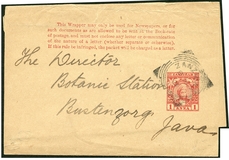 This Wrapper may only be used for Newspapers, or for
such documents as are allowed to be sent at the Book rate
of postage, and must not enclose any letter or communication
of the nature of a letter (whether separate or otherwise).
If this rule be infringed, the packet will be charged as a letter.
The Director
Botanic Station
Buitenzorg,
Java